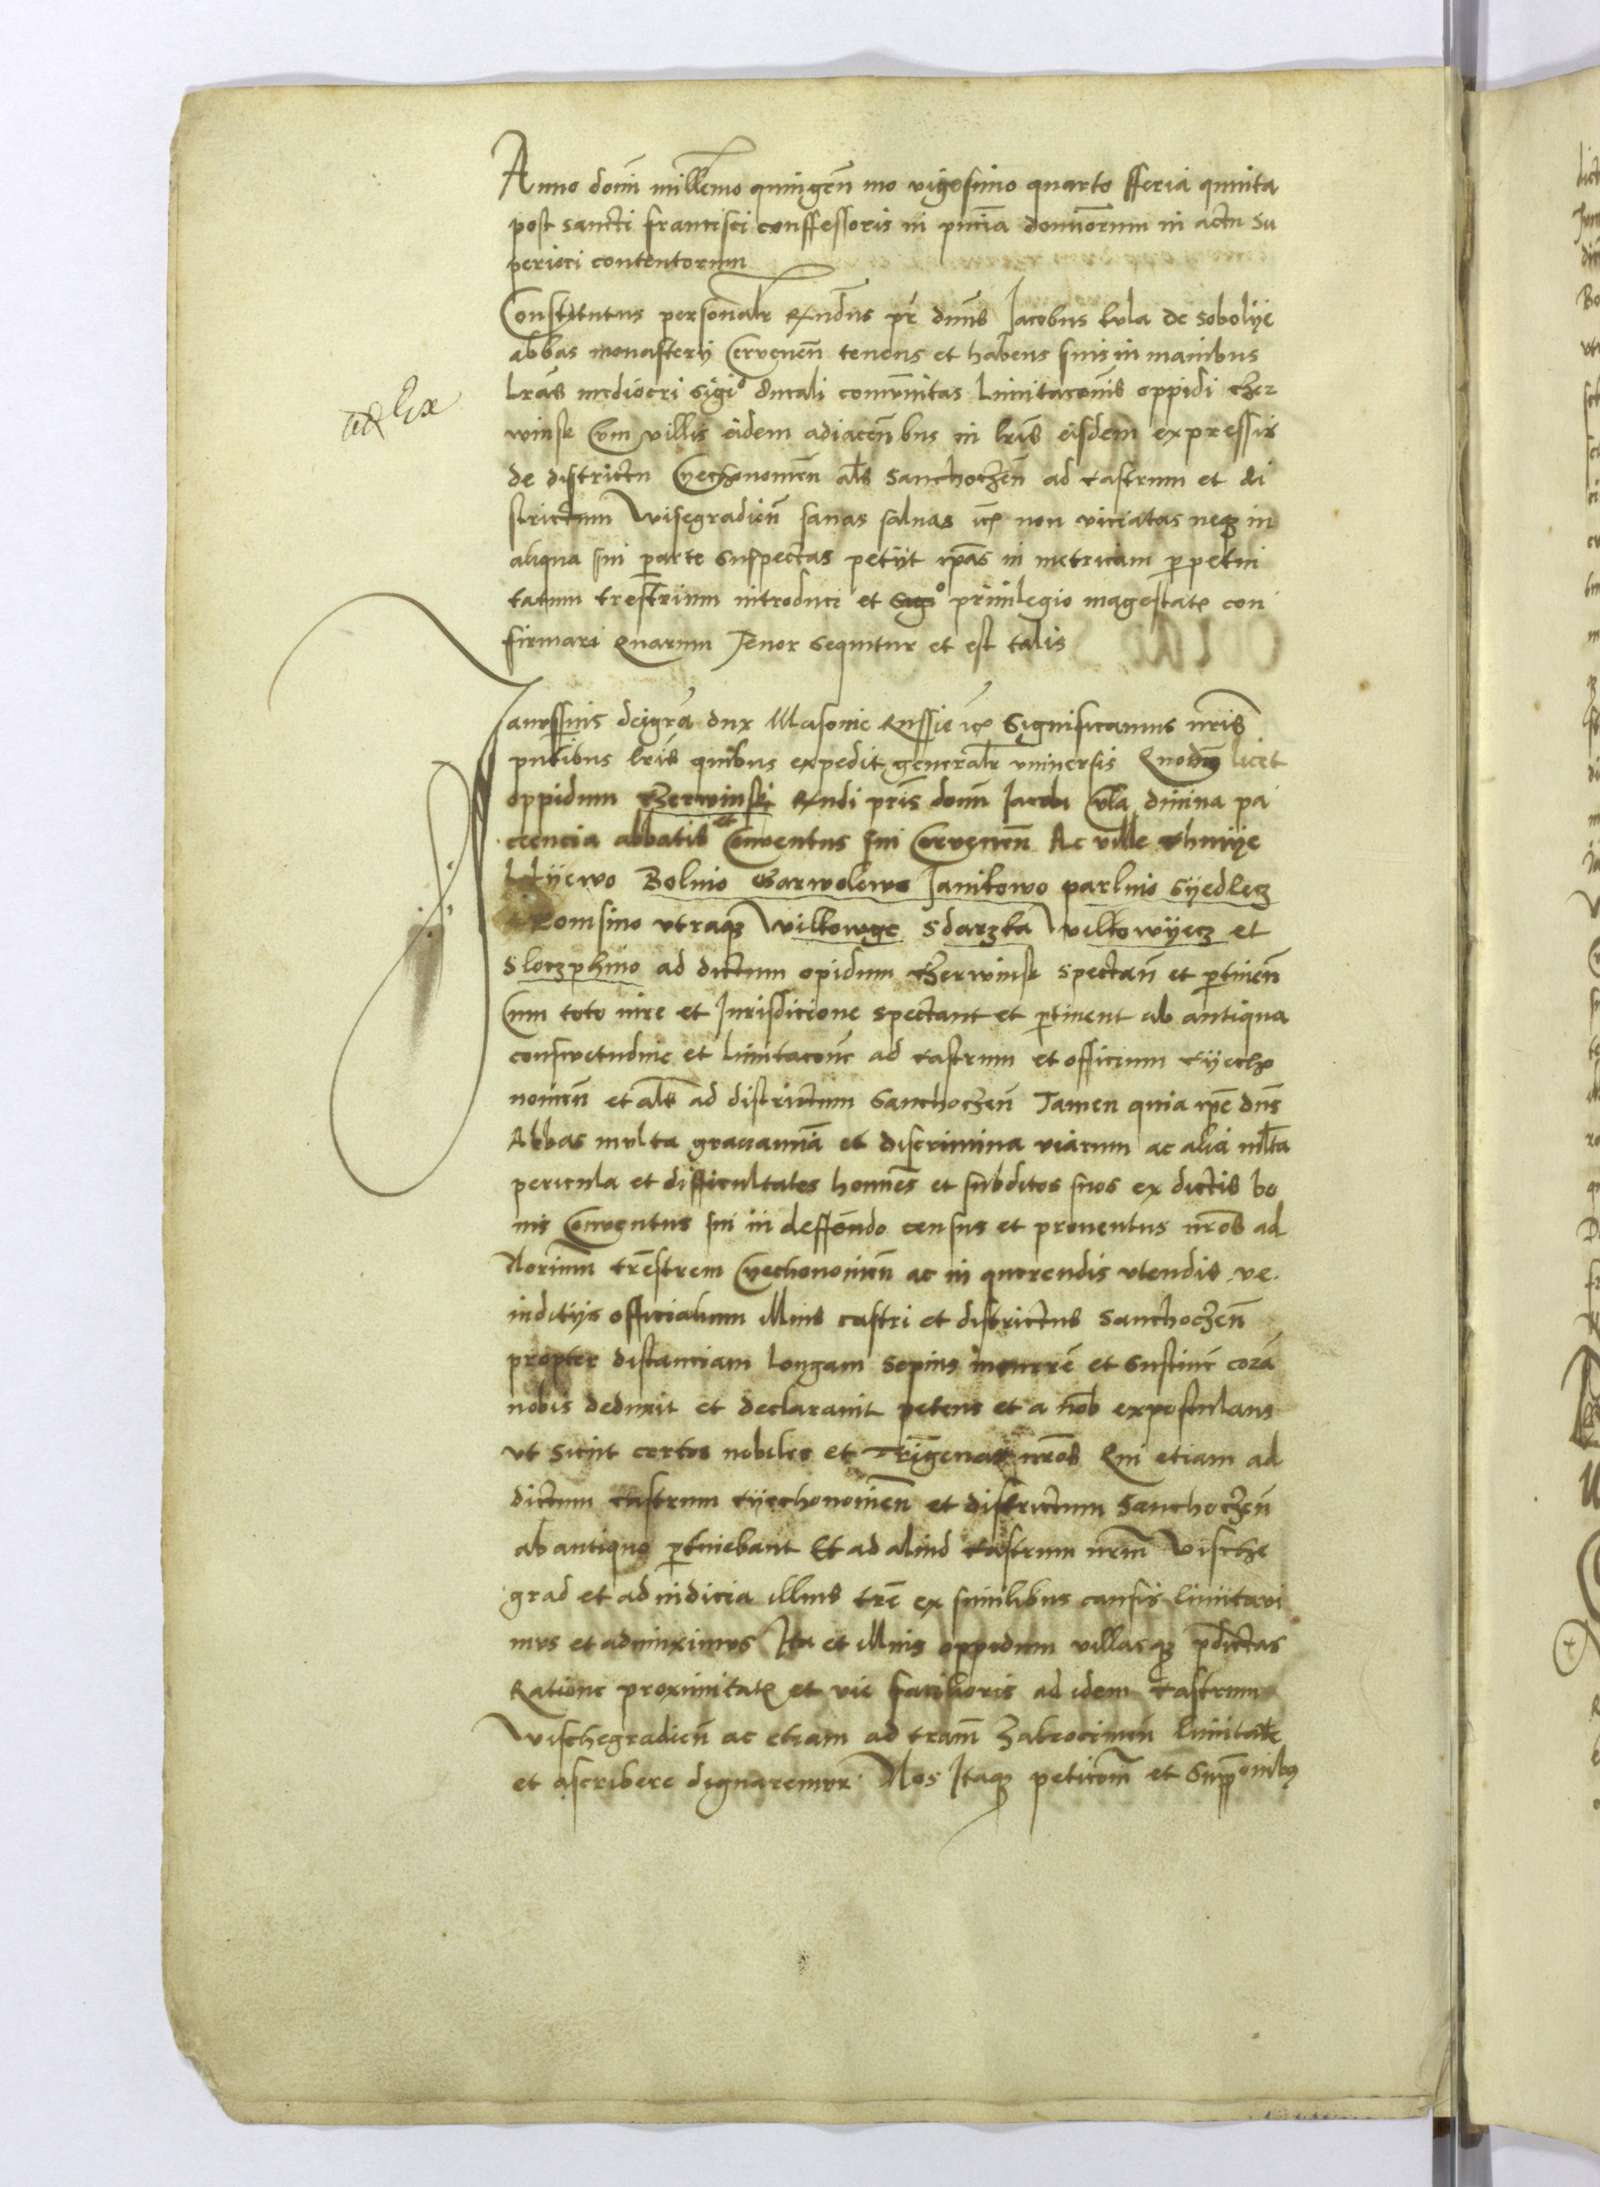 Anno domi millemo quingen mo vigesimo quarto fferia quinta
post sancti francisci conffessoris in pncia dominorum in actu su
periori contentorum
Constitutus personalr Rndus pr dnus Jacobus kula de Sobolye
abbas monasterij Cervenen tenens et habens suis in manibus
lras mediocri sigio ducali comunitas limitaconis oppidi Czer
winsk Cum villis eidem adiacen bus in lris eisdem expressis
de districtu Cyechonomen als Sanchoczen ad castrum et di
strictum Wisegradien sanas saluas icz non viciatas neqz in
aliqua sui parte suspectas petijt ipas in metricam perpetui
tatum trestrium introduci et sigo priuilegio magestatis con
firmari Quarum Tenor sequitur et est talis
Janussius deigra dux Masouie Russie icz Significamus nris
pntibus lris quibus expedit generalr vniuersis Quodqz licet
oppidum Czerwinski Rndi pris domi Jacobi Cula diuina pa
ciencia abbatis et Conventus sui Cervenen Ac ville
Bolino Garwolewo Janikowo parlino Syedlecz
Komsino vtraqz Wilkowye Sdarzka Vilkowyecz et
Sloczphino ad dictum opidum Czerwinsk spectan et pertinen
Cum toto iure et Jurisdicione spectant et pertinent ab antiqua
conswetudine et limitacone ad castrum et officium Cyecho
nouien et als ad districtum Sanchoczen Tamen quia ipe dns
Abbas multa grauamia et discrimina viarum ac alia mlta
pericula et difficultates homines et subditos suos ex dictis bo
nis Conventus sui in deffendo census et prouentus nros ad
Norium trestrem Cyechonouien ac in querendis vtendis ve
inditijs officialium illius castri et districtus Sanchoczen
propter distanciam longam sepius incurre et sustine cora
nobis deduxit et declarauit petens et a nob expostulans
vt sicut certos nobiles et Trigenas nros Qui etiam ad
dictum castrum Cyechonouien et districtum Sanchoczen
ab antiquo pertinebant Et ad aliud castrum nrm Vische
grad et ad iudicia illius tre ex similibus causis limitaui
mus et adiunximus Ita et illius oppidum villasqz pdictas
Ratione proximitatis et vie facilioris ad idem castrum
Wischegradien ac etiam ad tram Zakrocimen limitare
et ascribere dignaremur Nos Itaqz peticoni et supponibus